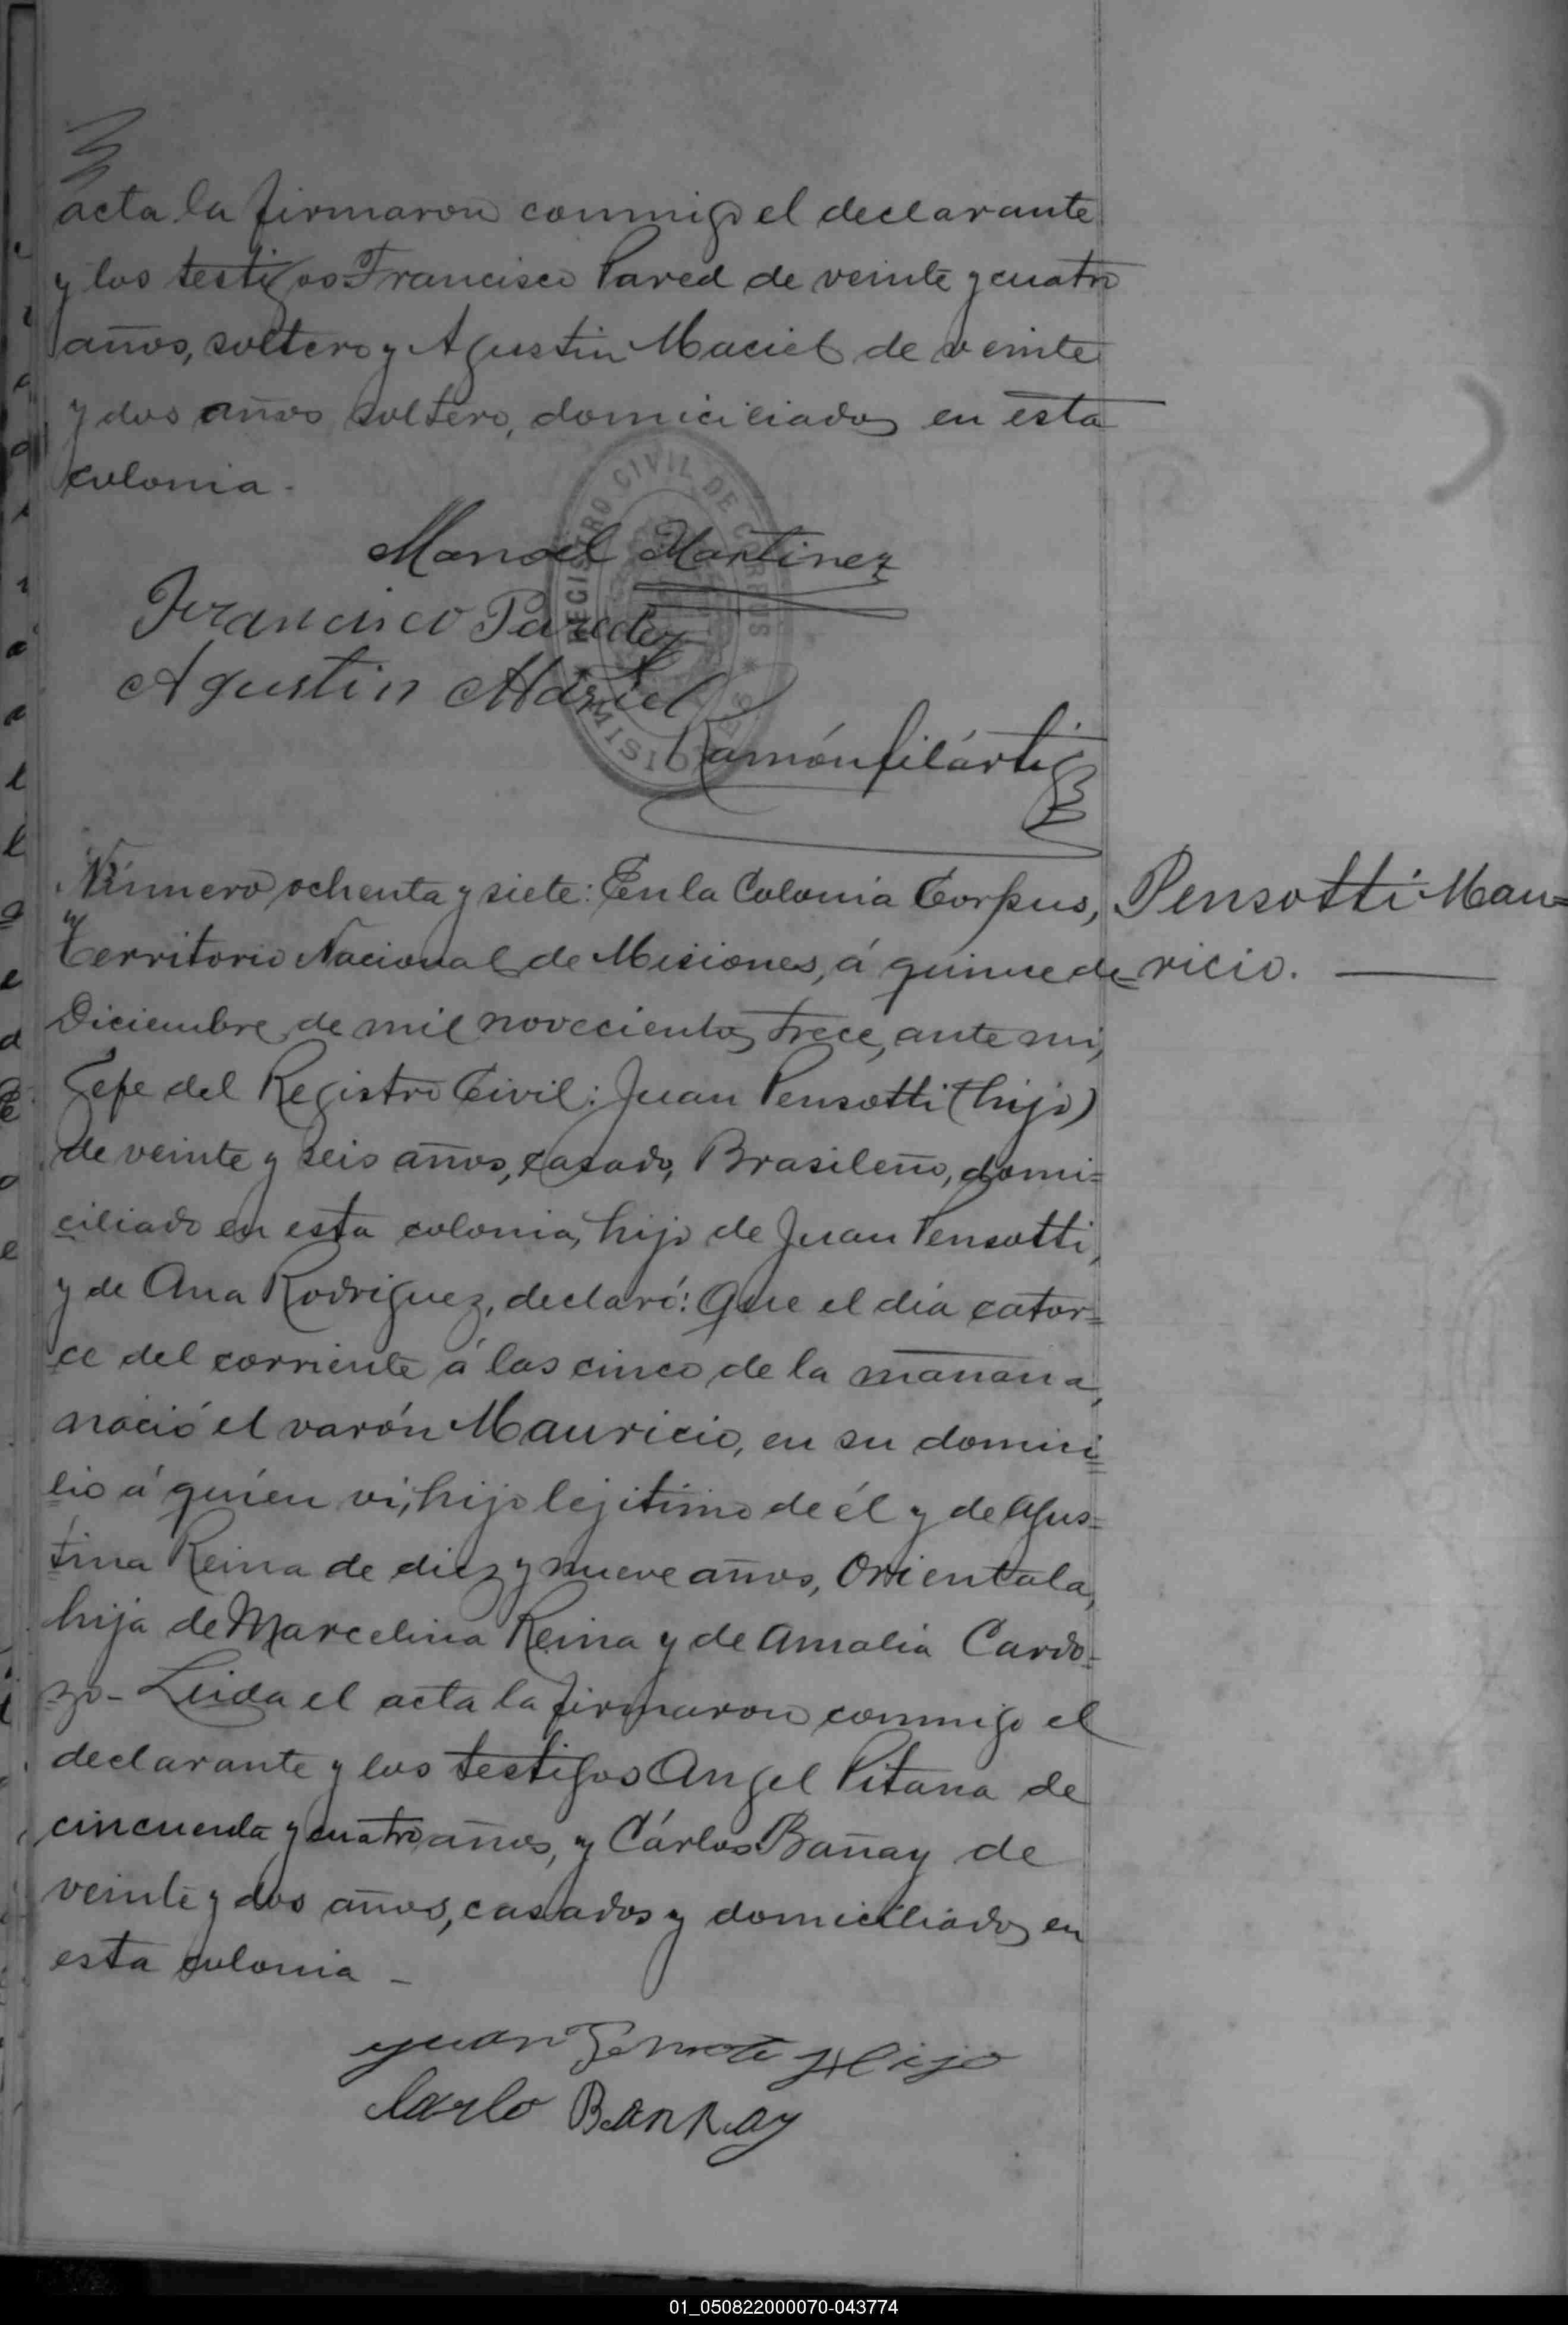 acta la firmaron conmigo el declarante
y los testigos Francisco Pared de veinte y cuatro
años, soltero y Agustin Maciel de veinte
y dos años soltero, domiciliados en esta
colonia.
REGISTRO CIVIL DE CORPUS * MISIONES *
Manoel Martinez
Francisco Paredez
Agustin Maziel
Ramón filártiga
Número ochenta y siete: En la Colonia Corpus,
Territorio Nacional de Misiones, á quince de
Diciembre de mil novecientos trece, ante mi,
Gefe del Registro Civil: Juan Pensotti (hijo)
de veinte y seis años, casado, Brasileño, domi=
ciliado en esta colonia, hijo de Juan Pensotti,
y de Ana Rodriguez, declaró: Que el dia cator=
ce del corriente á las cinco de la mañana,
nació el varón Mauricio, en su domici=
lio á quién vi, hijo lejitimo de él y de Agus=
tina Reina de diez y nueve años, Orientala,
hija de Marcelina Reina y de Amalia Cardo=
zo - Leida el acta la firmaron conmigo el
declarante y los testigos Angel Pitana de
cincuenta y cuatro años, y Cárlos Bañay de
veinte y dos años, casados y domiciliados en
esta colonia -
Pensotti Mau=
ricio.
Juan Hijo
Carlo Banhay
01_050822000070-043774